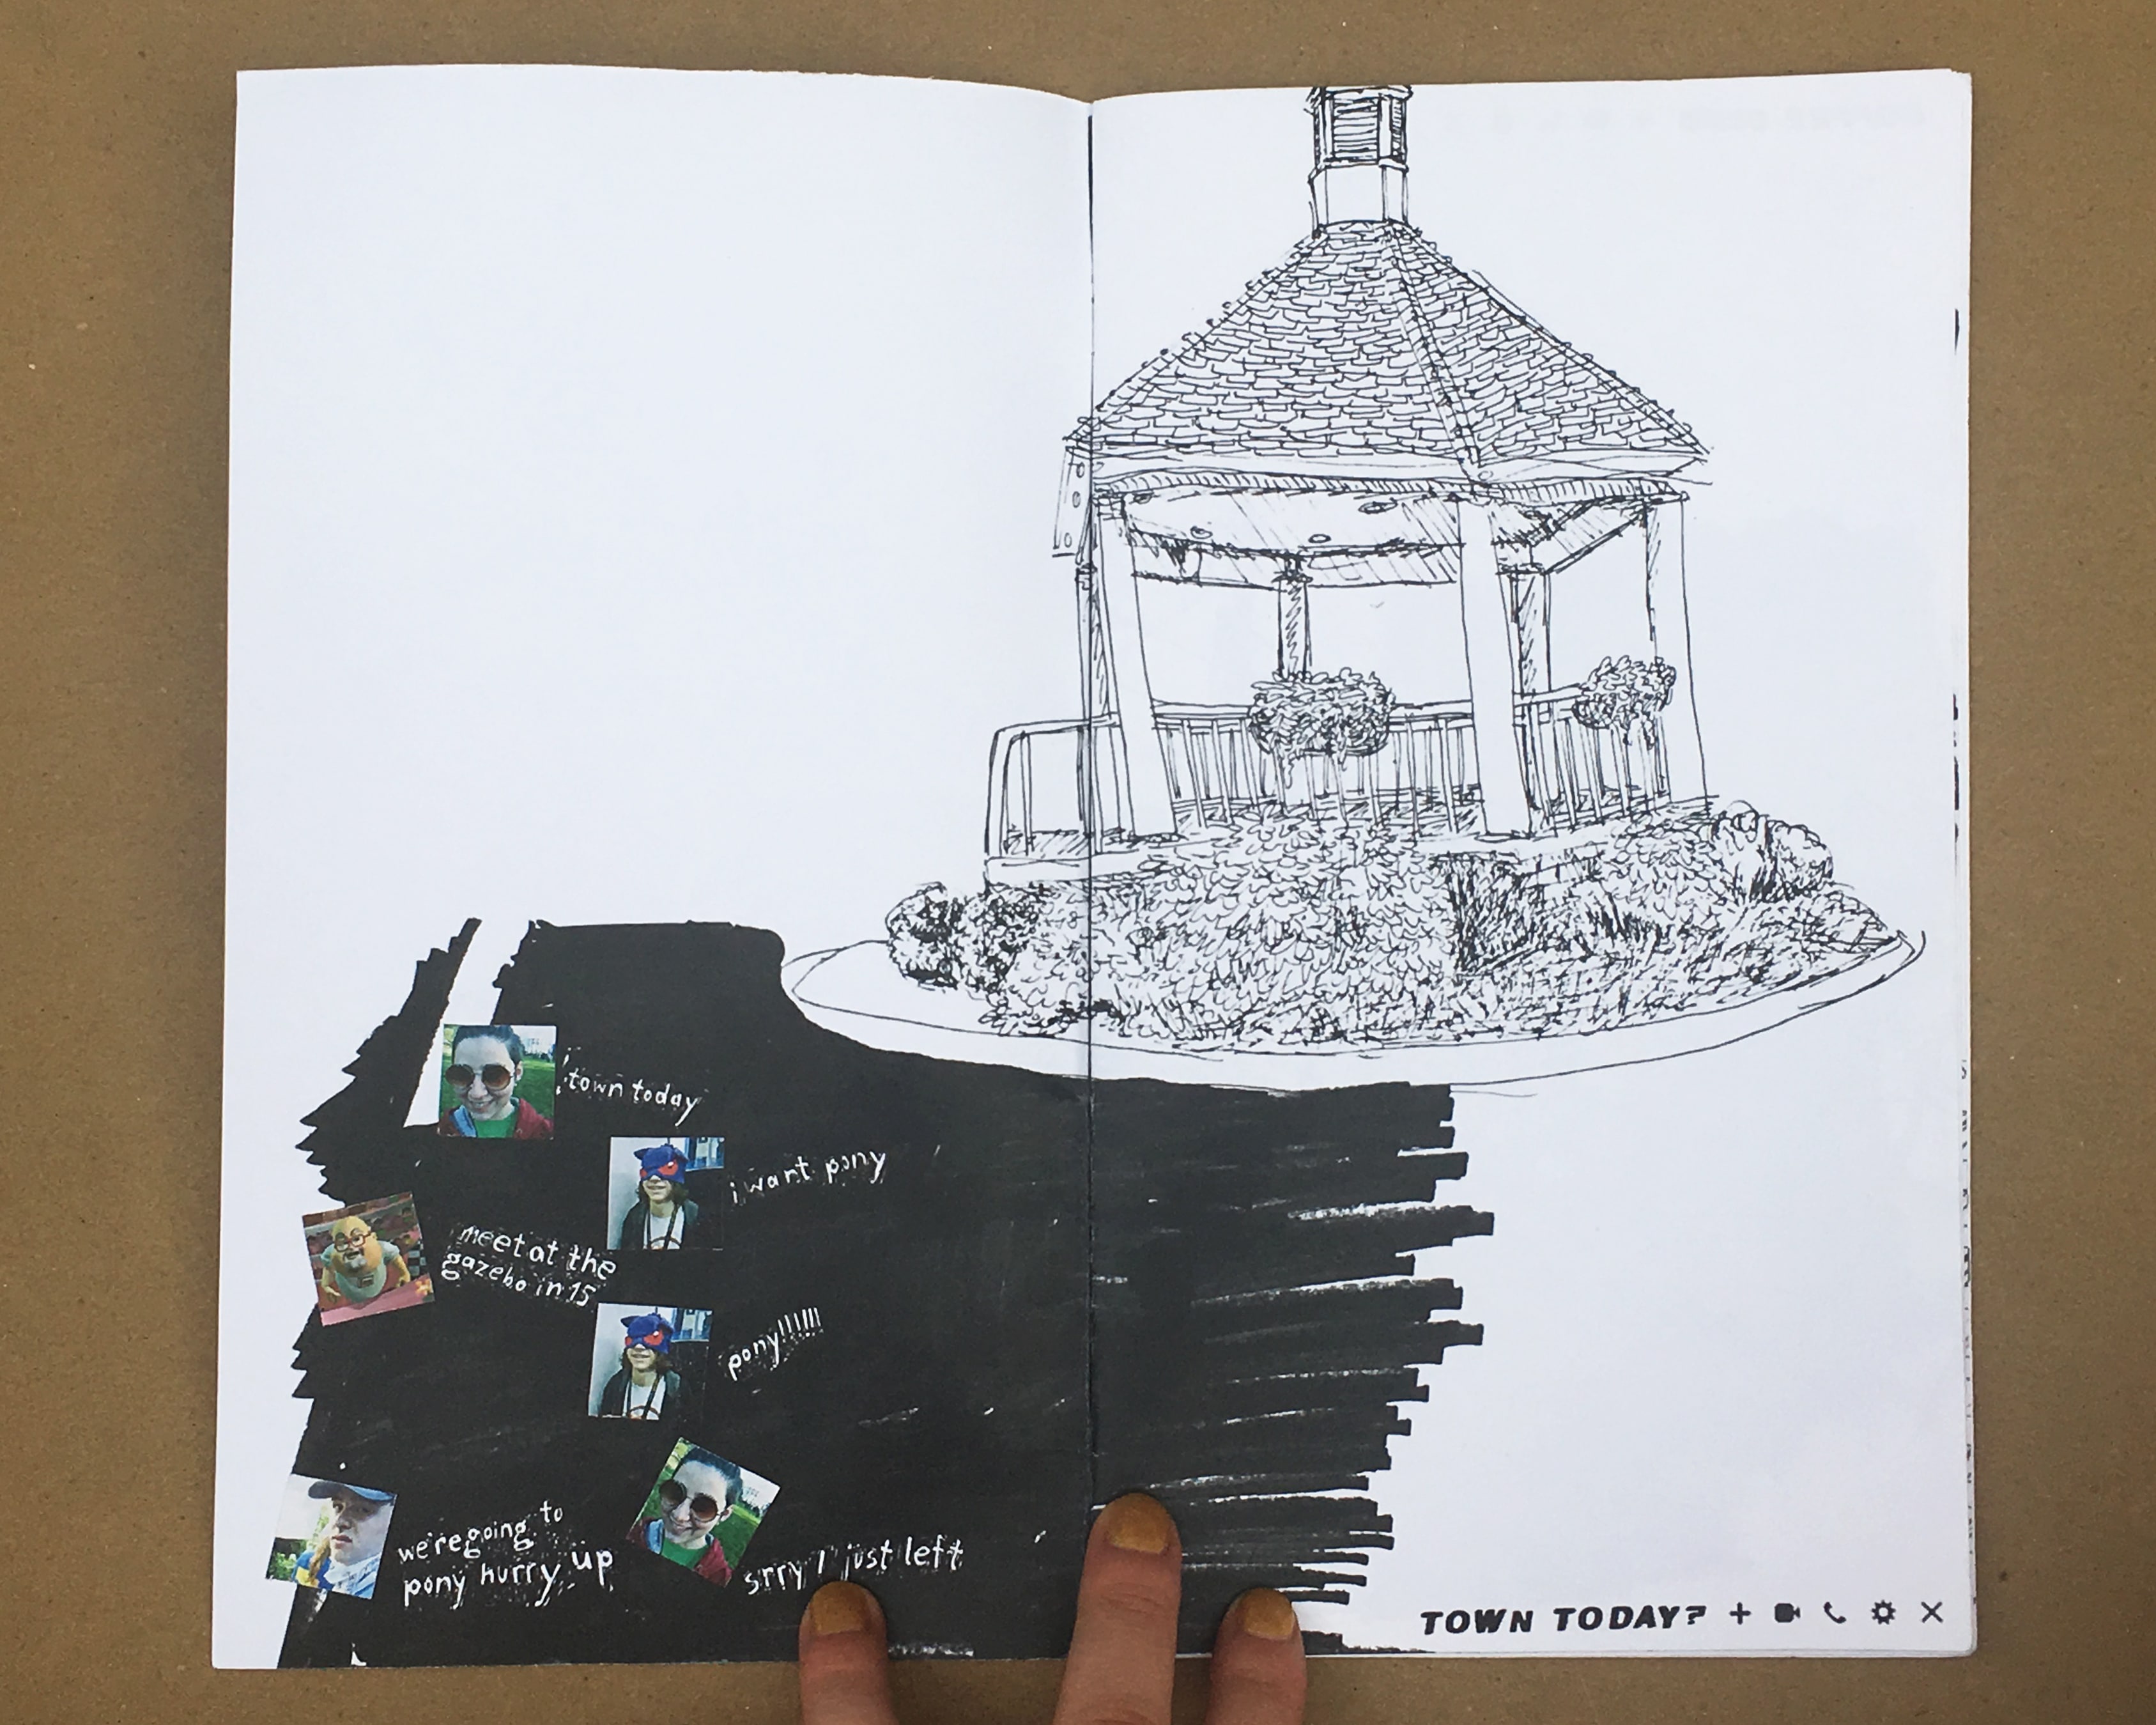 town today
i want pony
meet at the
gazebo in 15
pony!!!!!!
we're going to
pony hurry up
srry I just left
TOWN TODAY?